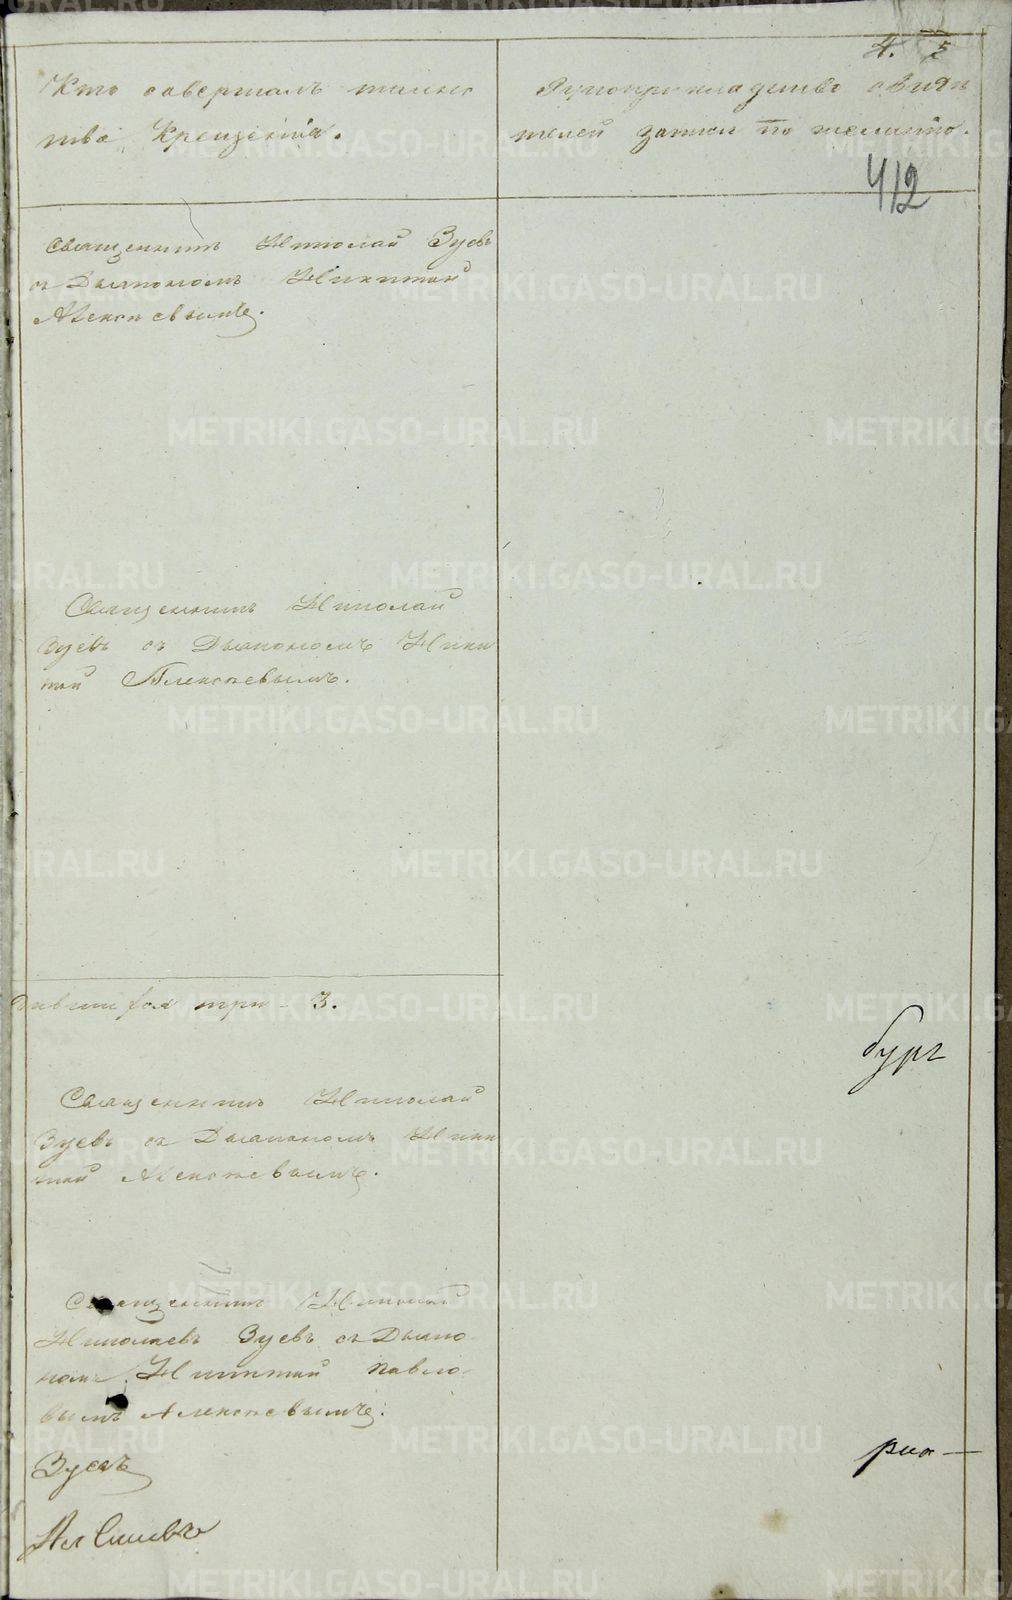 4. 5
Кто совершалъ таинс
тво Крещенія.
Рукоприкладство свидѣ
телей записи по желанію.
412
Священникъ Николай Зуевъ
съ Дьякономъ Никитой
Алексѣевымъ.
Священникъ Николай
Зуевъ съ Дьякономъ Ники
той Алексѣевымъ.
три 3.
бург
Священникъ Николай
Зуевъ съ Дьякономъ Ники
той Алексѣевымъ.
Священникъ Николай
Николаевъ Зуевъ съ Дьяко
номъ Никитой Павло
вымъ Алексѣевымъ.
Зуевъ
METRIKI.GASO-URAL.RU